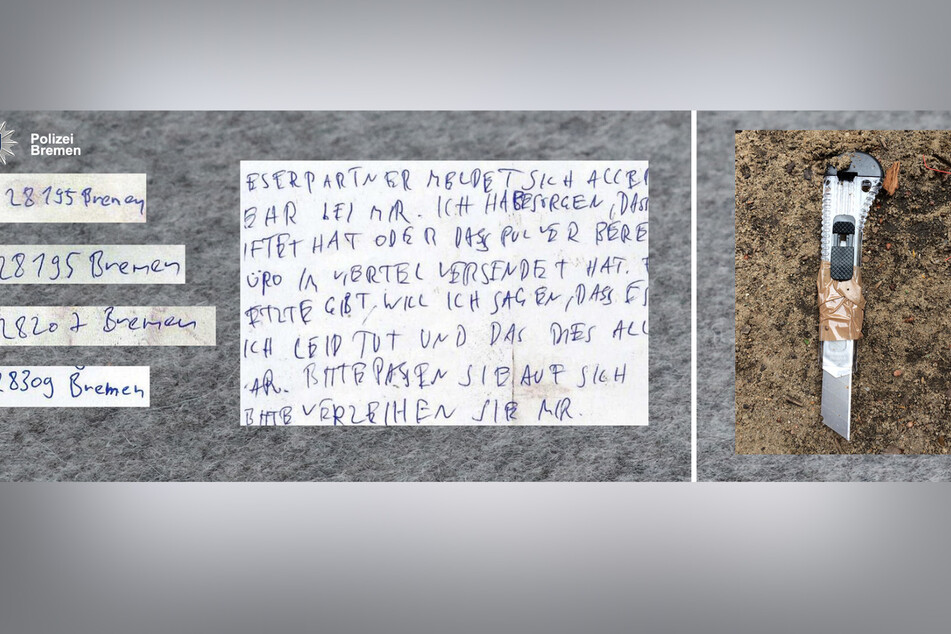 Polizei
Bremen
28195 Bremen
28195 Bremen
28207 Bremen
28309 Bremen
ESERPARTNER MELDET SICH ALLE
BAR BEI MIR. ICH HABE SORGEN, DAS
IFTET HAT ODER DASS PULVER BERE
ÜRO IM VIERTEL VERSENDET HAT.
ETZTE GIBT, WILL ICH SAGEN, DASS ES
ICH LEID TUT UND DAS DIES ALL
AR. BITTE PASSEN SIE AUF SICH
BITTE VERZEIHEN SIE MIR.